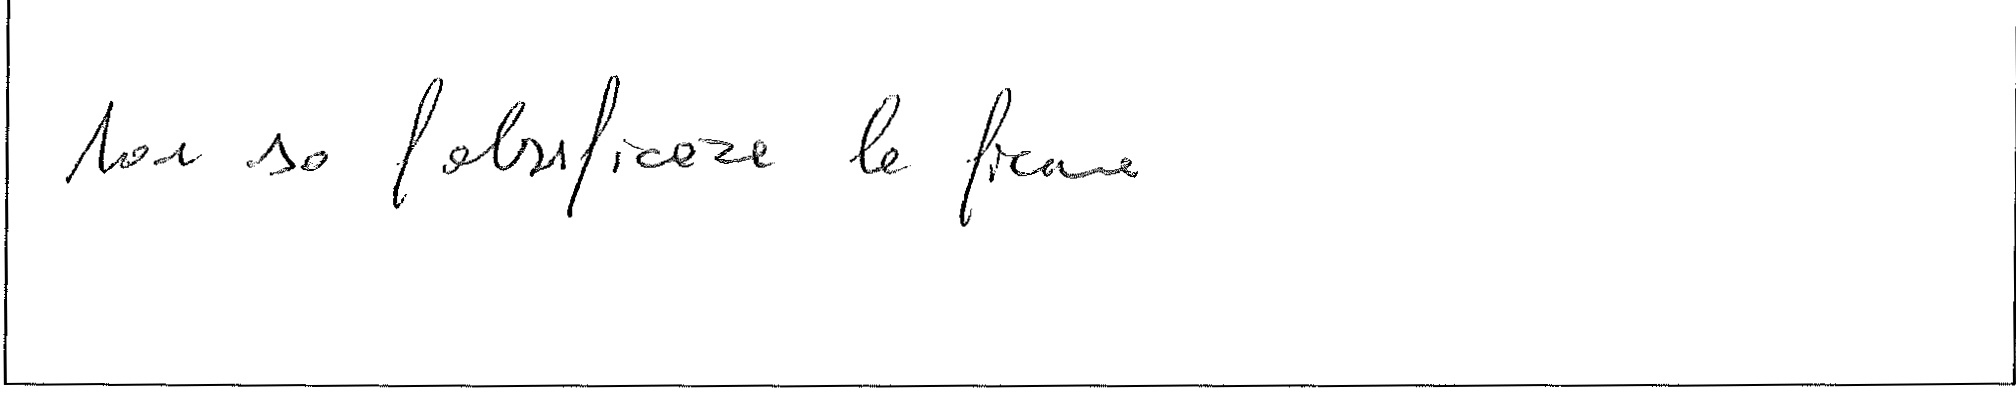 Non so falsificare le firme